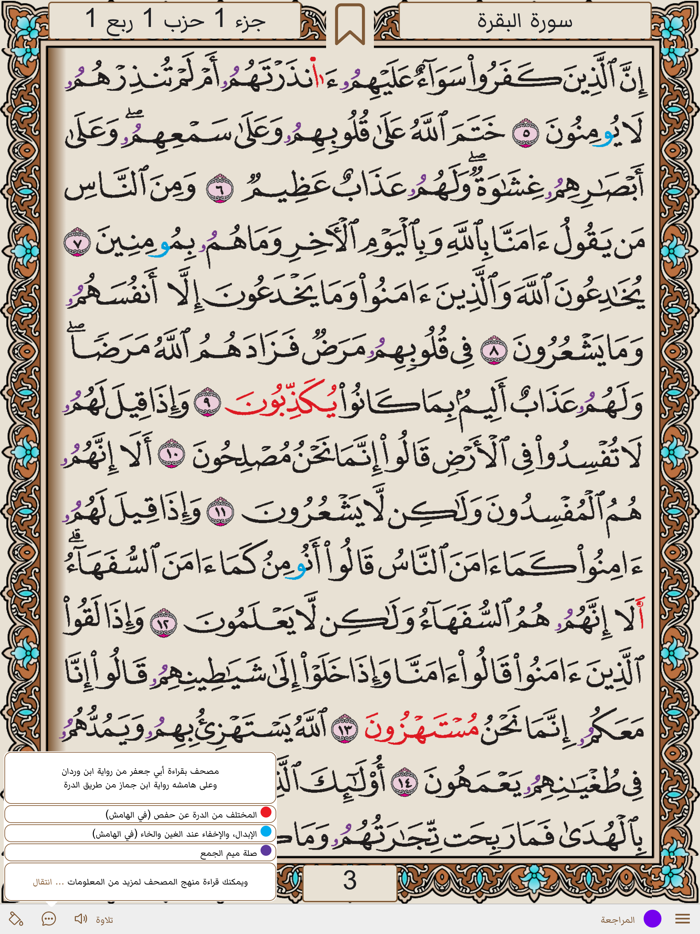 سورة البقرة
جزء 1 حزب 1 ربع 1
إِنَّ ٱلَّذِينَ كَفَرُوا۟ سَوَآءٌ عَلَيْهِمُۥ ءَا۬نذَرْتَهُمُۥ أَمْ لَمْ تُنذِرْهُمُۥ
لَا يُومِنُونَ ٥ خَتَمَ ٱللَّهُ عَلَىٰ قُلُوبِهِمُۥ وَعَلَىٰ سَمْعِهِمُۥ ۖ وَعَلَىٰ
أَبْصَٰرِهِمُۥ غِشَٰوَةٌ ۖ وَلَهُمُۥ عَذَابٌ عَظِيمٌ ٦ وَمِنَ ٱلنَّاسِ
مَن يَقُولُ ءَامَنَّا بِٱللَّهِ وَبِٱلْيَوْمِ ٱلْأٓخِرِ وَمَا هُمُۥ بِمُومِنِينَ ٧
يُخَٰدِعُونَ ٱللَّهَ وَٱلَّذِينَ ءَامَنُوا۟ وَمَا يَخْدَعُونَ إِلَّا أَنفُسَهُمُۥ
وَمَا يَشْعُرُونَ ٨ فِى قُلُوبِهِمُۥ مَرَضٌ فَزَادَهُمُ ٱللَّهُ مَرَضًا ۖ
وَلَهُمُۥ عَذَابٌ أَلِيمٌۢ بِمَا كَانُوا۟ يُكَذِّبُونَ ٩ وَإِذَا قِيلَ لَهُمُۥ
لَا تُفْسِدُوا۟ فِى ٱلْأَرْضِ قَالُوا۟ إِنَّمَا نَحْنُ مُصْلِحُونَ ١٠ أَلَا إِنَّهُمُۥ
هُمُ ٱلْمُفْسِدُونَ وَلَٰكِن لَّا يَشْعُرُونَ ١١ وَإِذَا قِيلَ لَهُمُۥ
ءَامِنُوا۟ كَمَا ءَامَنَ ٱلنَّاسُ قَالُوا۟ أَنُومِنُ كَمَا ءَامَنَ ٱلسُّفَهَآءُ ۗ
أَلَا إِنَّهُمُۥ هُمُ ٱلسُّفَهَآءُ وَلَٰكِن لَّا يَعْلَمُونَ ١٢ وَإِذَا لَقُوا۟
ٱلَّذِينَ ءَامَنُوا۟ قَالُوا۟ ءَامَنَّا وَإِذَا خَلَوْا۟ إِلَىٰ شَيَٰطِينِهِمُۥ قَالُوا۟ إِنَّا
مَعَكُمُۥ إِنَّمَا نَحْنُ مُسْتَهْزُونَ ١٣ ٱللَّهُ يَسْتَهْزِئُ بِهِمُۥ وَيَمُدُّهُمُۥ
فِى طُغْيَٰنِهِمُۥ يَعْمَهُونَ ١٤ أُو۟لَٰٓئِكَ
بِٱلْهُدَىٰ فَمَا رَبِحَت تِّجَٰرَتُهُمُۥ
مصحف بقراءة أبي جعفر من رواية ابن وردان
وعلى هامشه رواية ابن جماز من طريق الدرة
المختلف من الدرة عن حفص (في الهامش)
الإبدال، والإخفاء عند الغين والخاء (في الهامش)
صلة ميم الجمع
ويمكنك قراءة منهج المصحف لمزيد من المعلومات ... انتقال
3
المراجعة
تلاوة